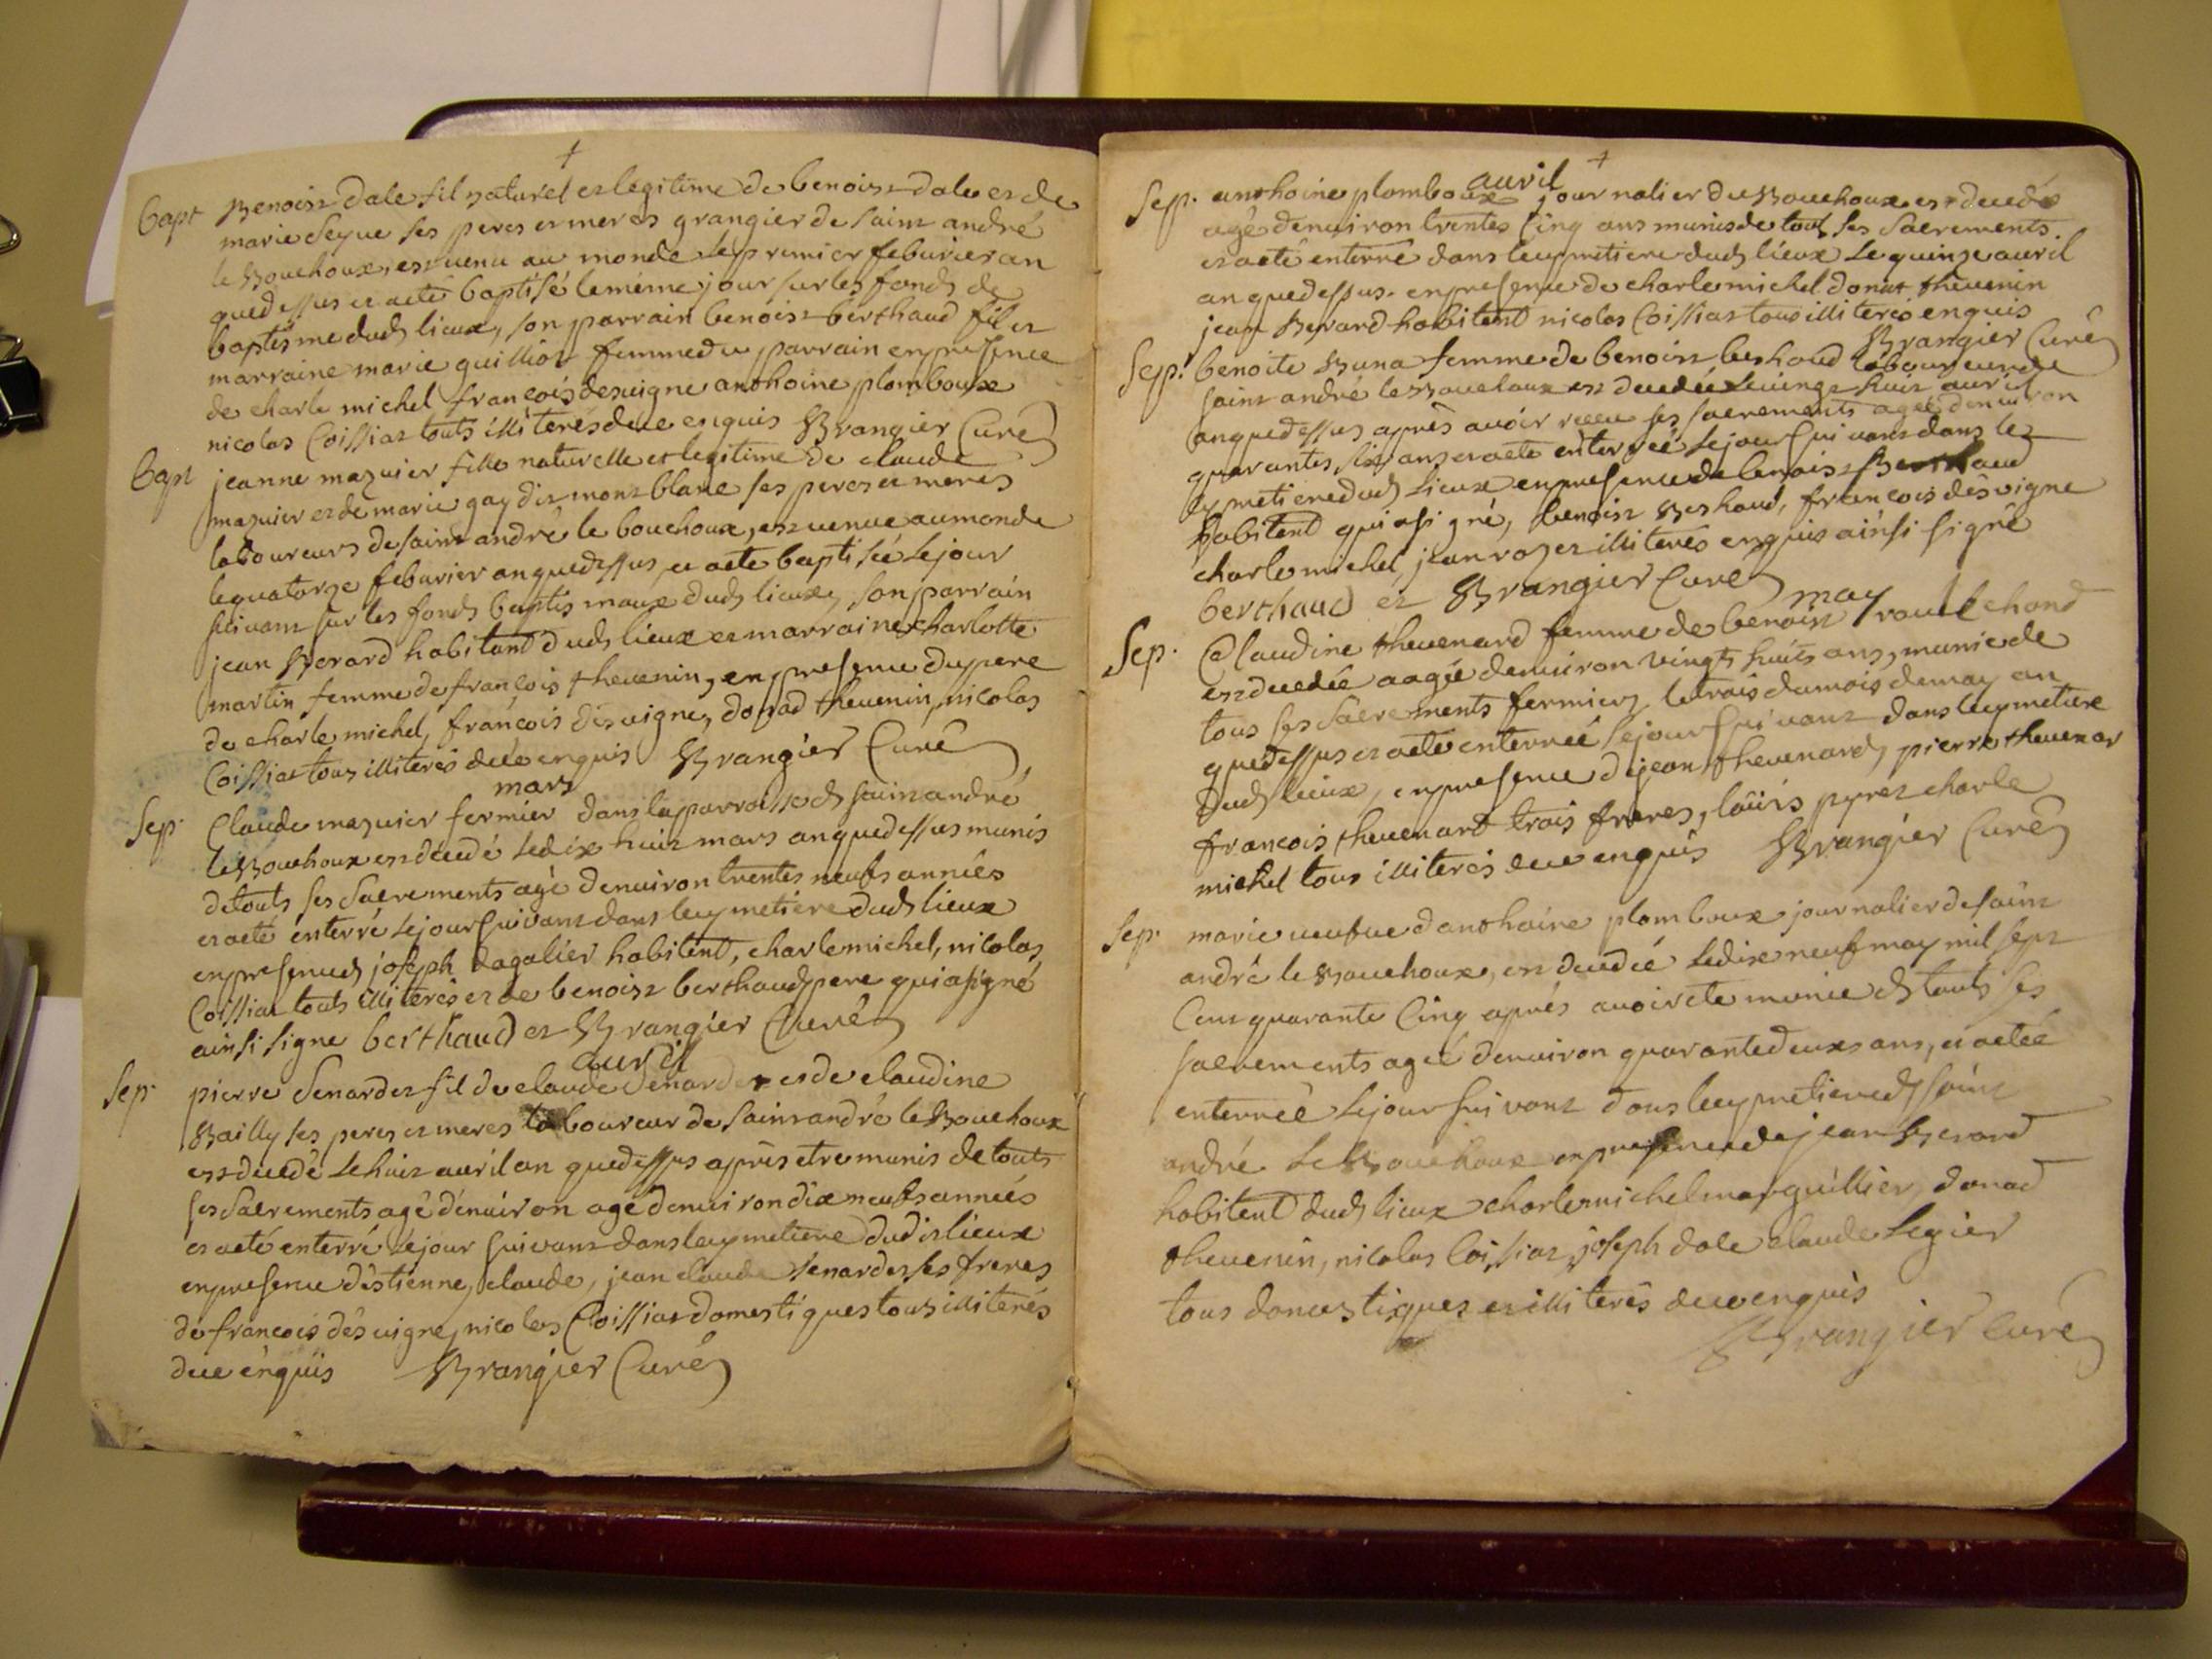 Bapt Benoist dale fil naturel et legitime de benoist dale et de
marie seyve ses peres et meres grangier de saint andré
le Bouchoux, est venu au monde le premier feburier an
que dessus et a eté baptisé le même jour sur les fonds de
baptisme dud lieux, son parrain benoist berthaud fil et
marraine marie guilliot femme du parrain en presence
de charle michel françois desvigne anthoine plomboux
nicolas Coissiat touts illiterés de ce enquis Brangier Curé
Bapt jeanne mazuier fille naturelle et legitime de claude
mazuier et de marie gay dit mont blanc ses peres et meres
laboureurs de saint andré le bouchoux, est venue au monde
le quatorze feburier an que dessus, et a eté baptisée le jour
suivant sur les fonds baptismaux dud lieux, son parrain
jean Berard habitant dud lieux et marraine charlotte
martin femme de françois thevenin, en presence du pere
de charle michel, françois desvigne, donad thevenin, nicolas
Coissiat tous illiterés de ce enquis Brangier Curé
mars
Sep. Claude mazuier fermier dans la parroisse de saint andré
le Bouchoux est decedé le dix huit mars an que dessus munis
de touts ses sacrements agé denviron trentes neufs années
et a eté enterré le jour suivant dans le cymetiere dud lieux
en presence de joseph dagalier habitent, charle michel, nicolas
Coissiat touts illiterés et de benoist berthaud pere qui a signé
ainsi signe berthaud et Brangier Curé
avril
Sep. pierre Senardet fil de claude Senardet et de claudine
Bailly ses peres et meres laboureur de saint andré le Bouchoux
est decedé le huit avril an que dessus après etre munis de touts
ses sacrements agé dénviron agé denviron dix neufs années
et a eté enterré le jour suivant dans le cymetiere dudit lieux
en presence déstienne, claude, jean claude senardet ses freres
de francois désvigne, nicolas Coissiat domestiques tous illiterés
de ce énquis Brangier Curé
avril
Sep. anthoine plomboux journalier du Bouchoux est decedé
agé denviron trentes Cinq ans munis de tout ses sacrements
et a eté enterré dans le cymetiere dud lieux le quinze avril
an que dessus. en presence de charle michel donat thevenin
jean Berard habitent nicolas Coissiat tous illiterés enquis
Brangier Curé
Sep. benoite Buna femme de benoist berthaud laboureur de
saint andré le Bouchoux est decedée le vingt huit avril
an que dessus après avoir receu ses sacrements agée denviron
quarantes six ans et a eté enterreé le jour suivant dans le
cymetiere dud lieux en presence de benoist Berthaud
habitent qui a signé, benoist Berthaud, francois désvigne
charle michel jean rozet illiterés enquis ainsi signé
berthaud et Brangier Curé
may
Sep. Claudine thevenard femme de benoist roullechond
est decedée aagée denviron vingts huits ans, munie de
tous ses sacrements fermiers le trois du mois de may an
que dessus et a eté enterreé le jour suivant dans le cymetiere
dud lieux, en presence de jean thevenard, pierre thevenar
francois thevenard trois freres, loüis pyret charle
michel tous illiterés de ce enquis Brangier Curé
Sep. marie veufve danthoine plomboux journalier de saint
andré le Bouchoux, est decedée le dix neuf may mil sept
Cent quarante Cinq aprés avoir ete munie de touts ses
sacrements ageé denviron quarante deuxs ans, et a etée
enterreé le jour suivant dans le cymetiere de saint
andré le Bouchoux en presence de jean Berard
habitent dud lieux charle michel marguillier, donad
thevenin, nicolas Coissiat, joseph dale claude Legier
tous domestiques et illiterés de ce enquis
Brangier curé